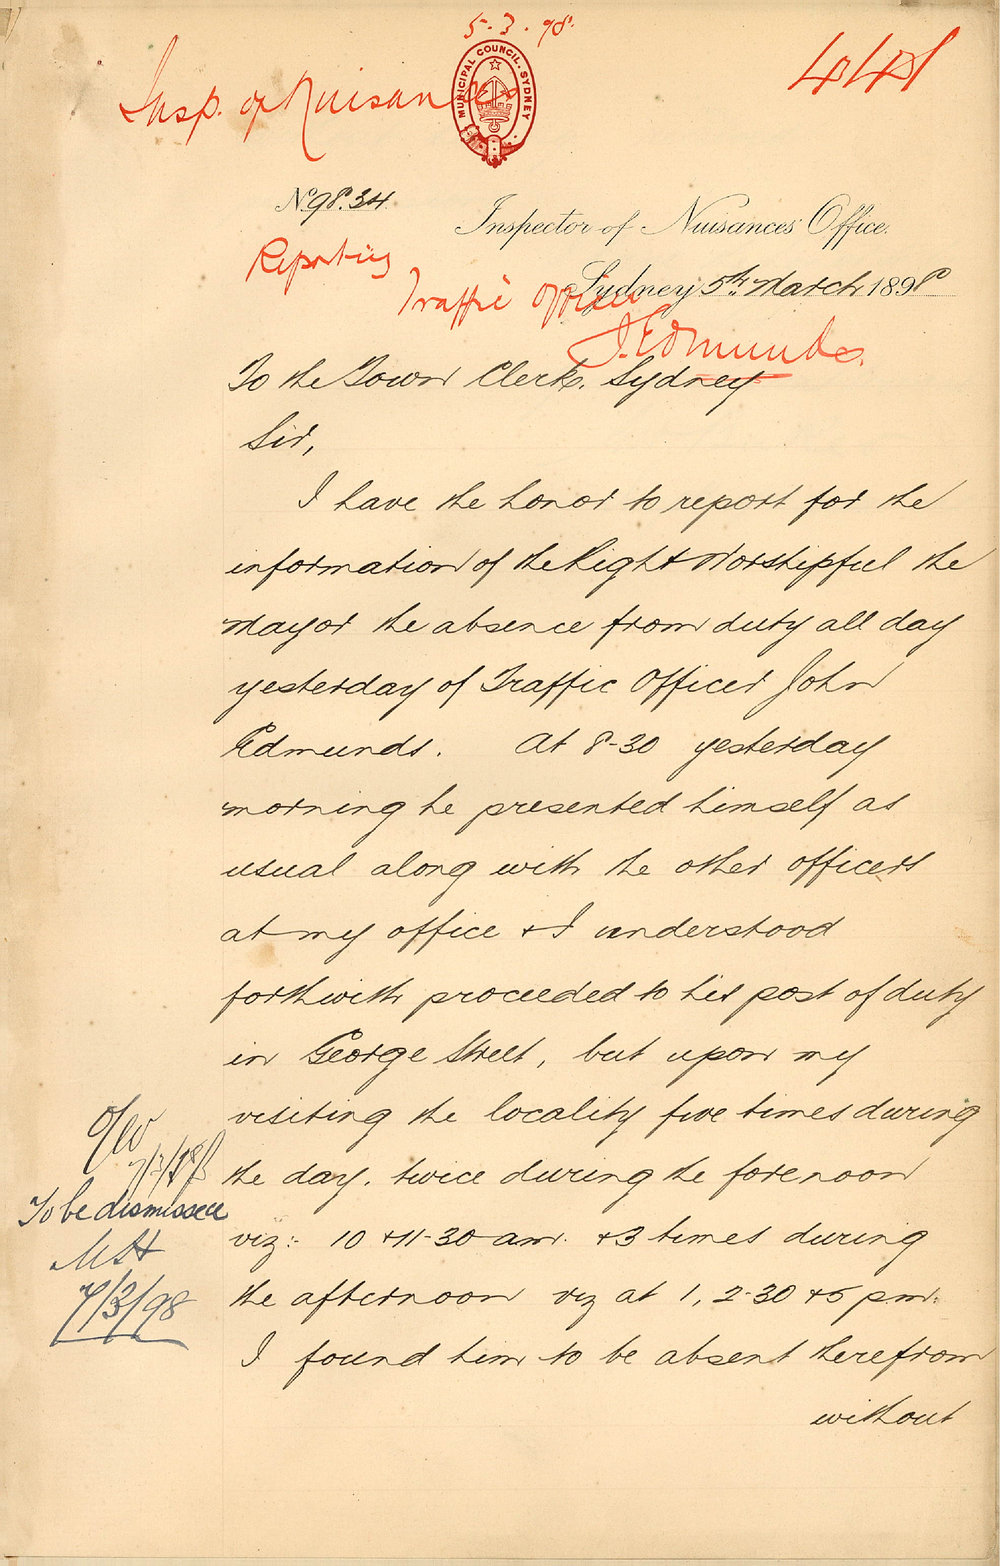 5.3.98.
Insp. of Nuisances
MUNICIPAL COUNCIL. SYDNEY
441
No 98.34
Inspector of Nuisances' Office.
Reporting
Sydney 5th March 1898
Traffic Officer
J. Edmunds.
To the Town Clerk. Sydney
Sir,
I have the honor to report for the
information of the Right Worshipful the
Mayor the absence from duty all day
yesterday of Traffic Officer John
Edmunds. At 8-30 yesterday
morning he presented himself as
usual along with the other officers
at my office & I understood
forthwith proceeded to his post of duty
in George Street, but upon my
visiting the locality five times during
the day. twice during the forenoon
viz:- 10 & 11-30 am. & 3 times during
the afternoon viz at 1, 2-30 & 5 pm.
I found him to be absent therefrom
without
7/3/98
To be dismissed
MSH
7/3/98